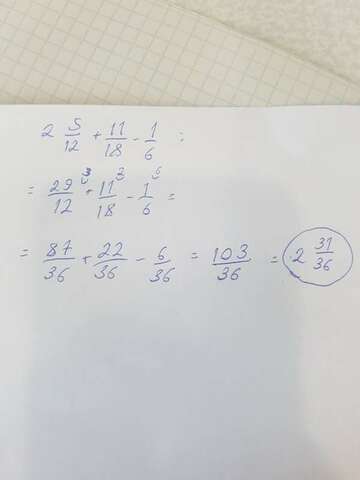 2 5/12 + 11/18 - 1/6 :
= 29/12 ³ + 11/18 ² - 1/6 ⁶ =
= 87/36 + 22/36 - 6/36 = 103/36 = 2 31/36